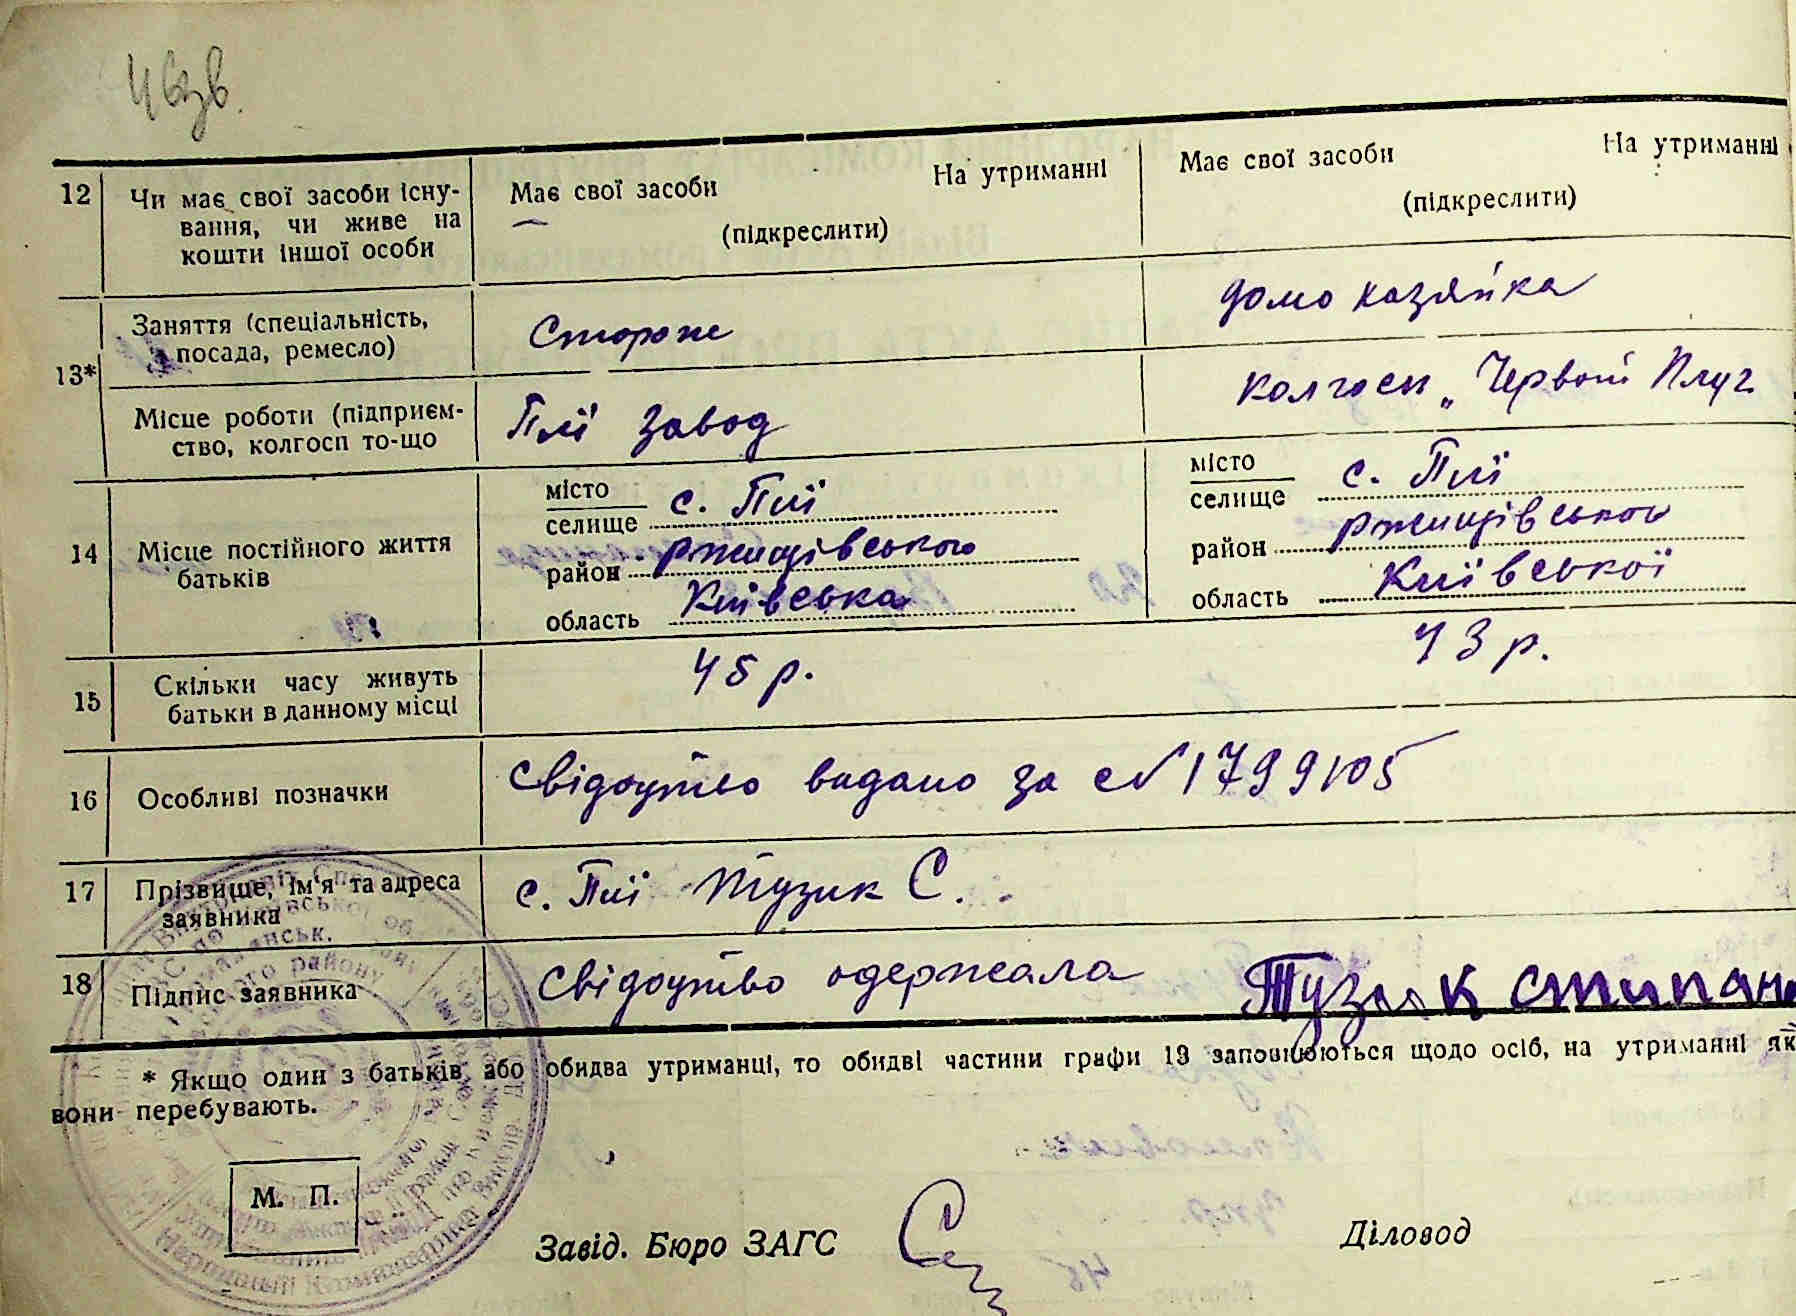 12 Чи має свої засоби існу-
вання, чи живе на
кошти іншої особи
Має свої засоби На утриманні
(підкреслити)
Має свої засоби На утриманні
(підкреслити)
13*
Заняття (спеціальність,
посада, ремесло)
Сторож
домо хазяйка
Місце роботи (підприєм-
ство, колгосп то-що
Пії завод
колгосп „Червоний Плуг
14 Місце постійного життя
батьків
місто
селище с. Пії
район Ржищівського
область Київська
місто
селище с. Пії
район Ржищівського
область Київської
15 Скільки часу живуть
батьки в данному місці
45 р.
43 р.
16 Особливі позначки
Свідоцтво видано за № 1799105
17 Прізвище, ім'я та адреса
заявника
с. Пії Тузик С.
18 Підпис заявника
Свідоцтво одержала Тузик
* Якщо один з батьків або обидва утриманці, то обидві частини графи 13 заповнюються щодо осіб, на утриманні як
вони перебувають.
М. П.
Завід. Бюро ЗАГС
Діловод